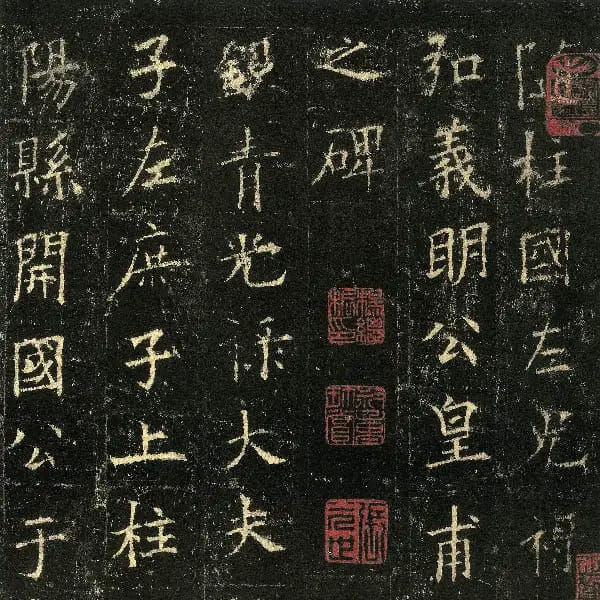 隋柱國左光祿
弘義明公皇甫
之碑
銀青光祿大夫
子左庶子上柱
陽縣開國公于